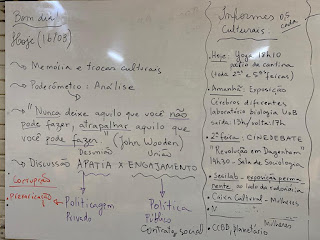 Bom dia!
Hoje (16/03)
→ Memória e trocas culturais
→ Poderômetro: Análise
→ "Nunca deixe aquilo que você não
pode fazer, atrapalhar aquilo
que você pode fazer." (John Wooden)
Desunião União
→ Discussão APATIA X ENGAJAMENTO
• Corrupção
• Prevaricação
→ Politicagem
Privado
Política
Público
Contrato social
Informes 0,5
Culturais cada
• Hoje: Yoga 18h10
pátio da cantina
(toda 2ªs e 5ªs feiras)
• Amanhã: Exposição
Cérebros diferentes
laboratório biologia UnB
saída: 13h/volta: 17h
• 2ª feira: CINEDEBATE
"Revolução em Dagenham"
14h30 - Sala de Sociologia
exposição perma
nente ao lado da
• Mulheres
• CCBB, planetário